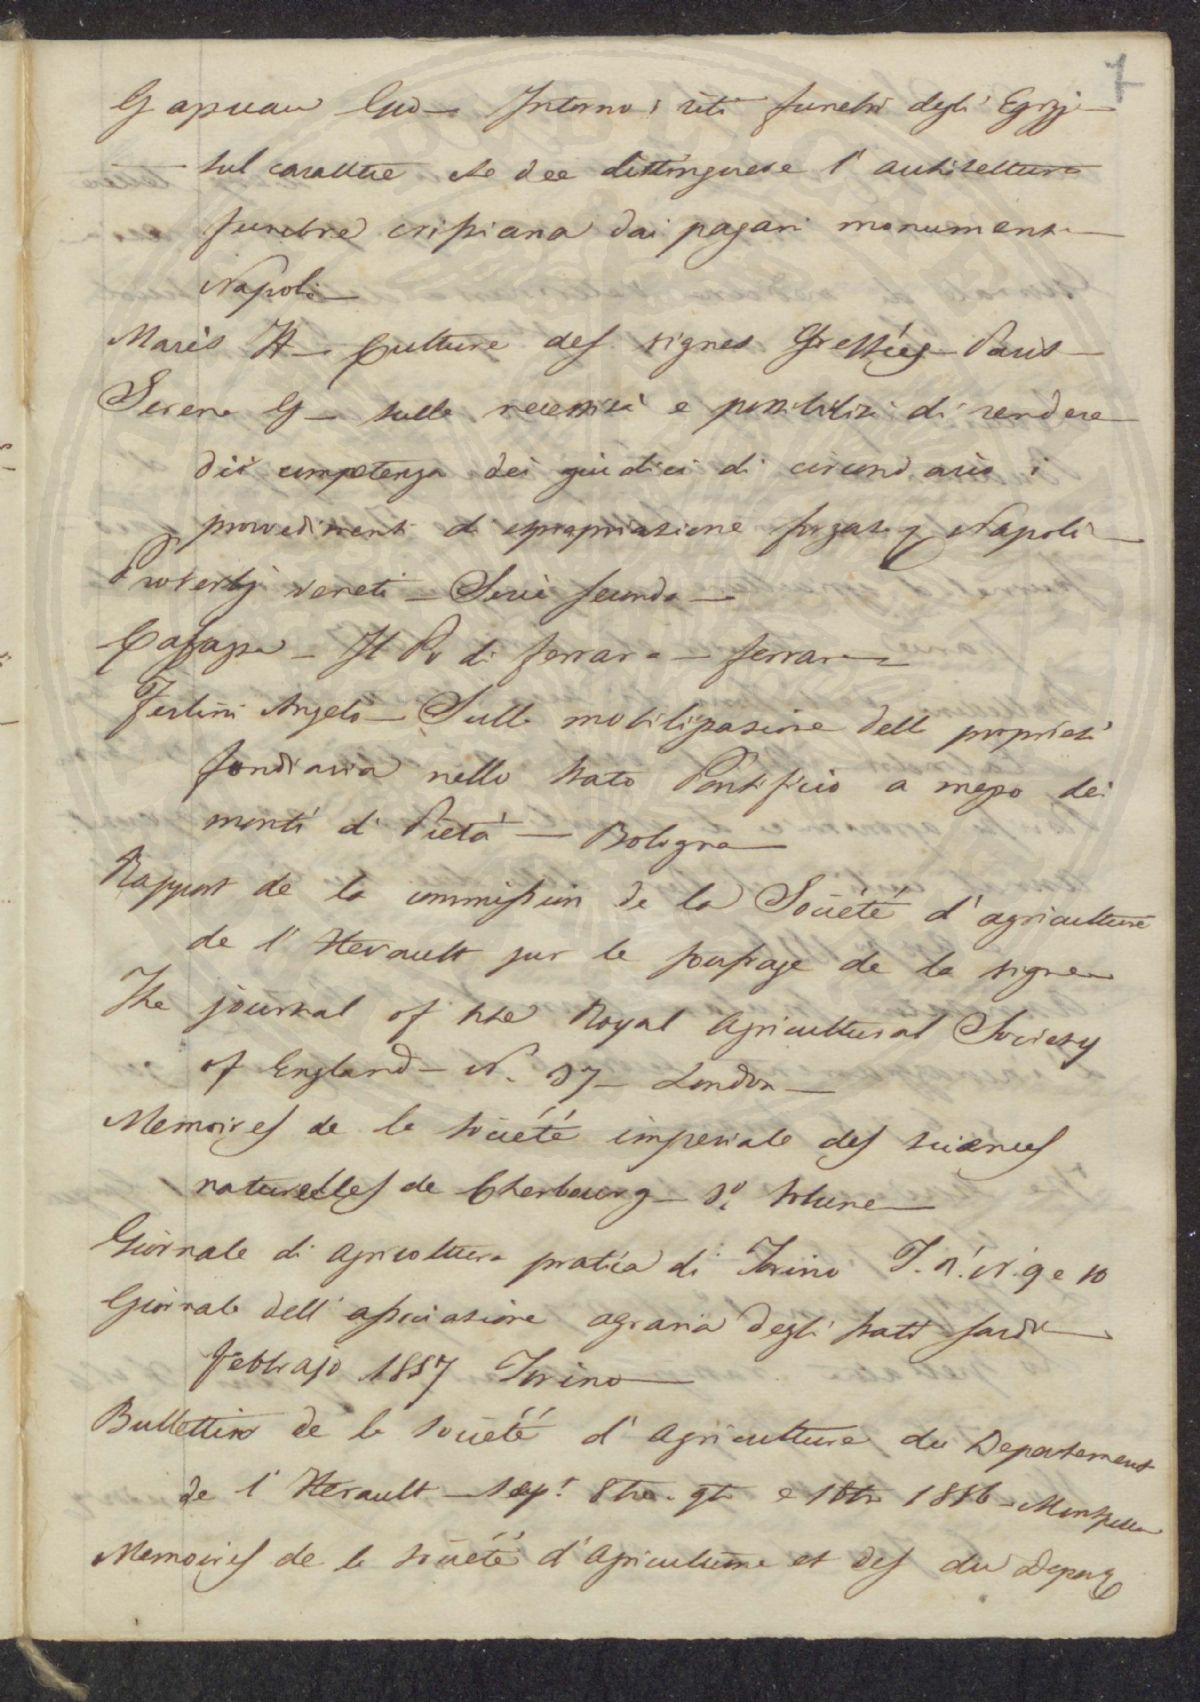 7
Intorno i riti funebri degli Egizj —
— sul carattere che dee distinguere l'architettura
funebre cristiana dai pagani monumenti —
Napoli —
Marès H — Culture des vignes — Paris —
Serena G — sulla necessità e possibilità di rendere
di competenza dei giudici di circondario i
provvedimenti di espropriazione forzata Napoli —
Proverbj veneti — Serie seconda —
Il Po di Ferrara — Ferrara —
Angelo — Sulla mobilizzazione della proprietà
fondiaria nello Stato Pontificio a mezzo dei
monti di Pietà — Bologna —
Rapport de la commission de la Société d'agriculture
de l'Herault sur le soufrage de la vigne —
The journal of the Royal Agricultural Society
of England — N. 37 — London —
Memoires de la société imperiale des sciences
naturelles de Cherbourg — 3.º Volume —
Giornale di agricoltura pratica di Torino T. N. 9 e 10
Giornale dell'associazione agraria degli stati sardi —
febbrajo 1857 Torino —
Bullettin de la société d'agriculture du Departement
de l'Herault — sept. 8bre. 9bre e 10bre 1856 —
Memoires de la société d'Agriculture et des du